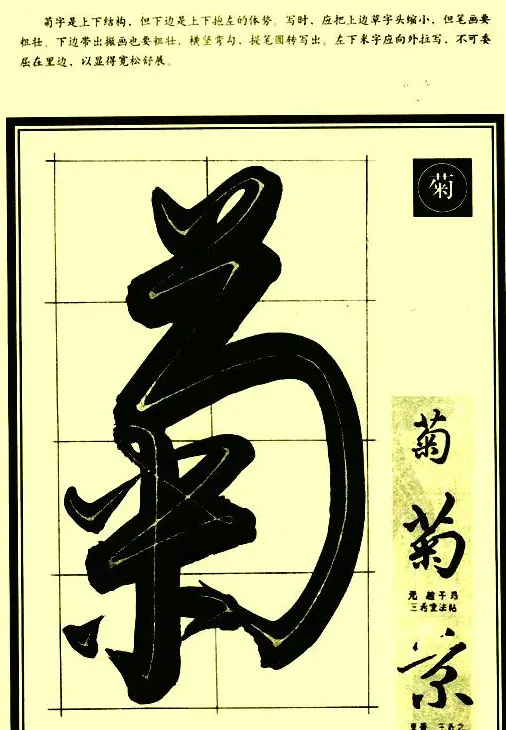 菊字是上下结构，但下边是上下抱左的体势。写时，应把上边草字头缩小，但笔画要
粗壮。下边带出撇画也要粗壮，横竖弯勾，提笔圆转写出。左下米字应向外拉写，不可委
屈在里边，以显得宽松舒展。
菊
菊
菊
菊
元 赵子昂
三希堂法帖